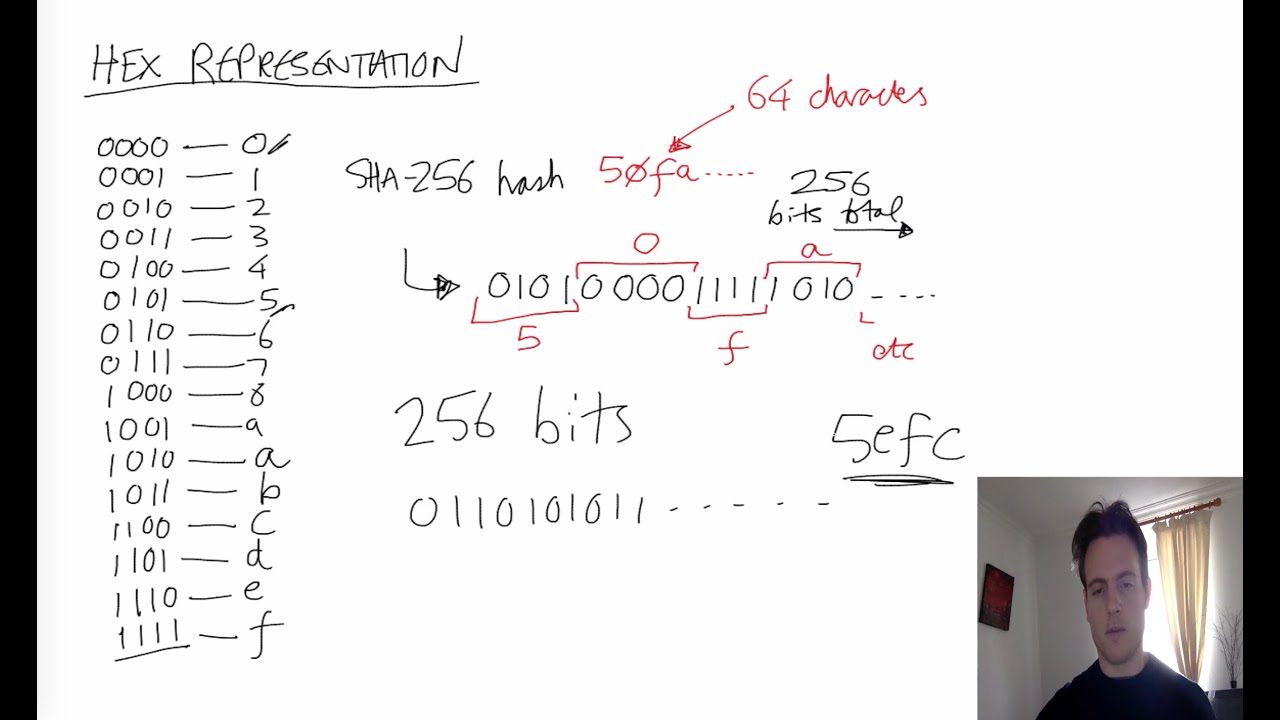 HEX REPRESENTATION
0000 — 0
0001 — 1
0010 — 2
0011 — 3
0100 — 4
0101 — 5
0110 — 6
0111 — 7
1000 — 8
1001 — a
1010 — a
1011 — b
1100 — c
1101 — d
1110 — e
1111 — f
64 characters
SHA-256 hash 50fa.....
256
bits total
0 a
0101000011111010 ....
5 f etc
256 bits
5efc
0110101011 - - - - - -